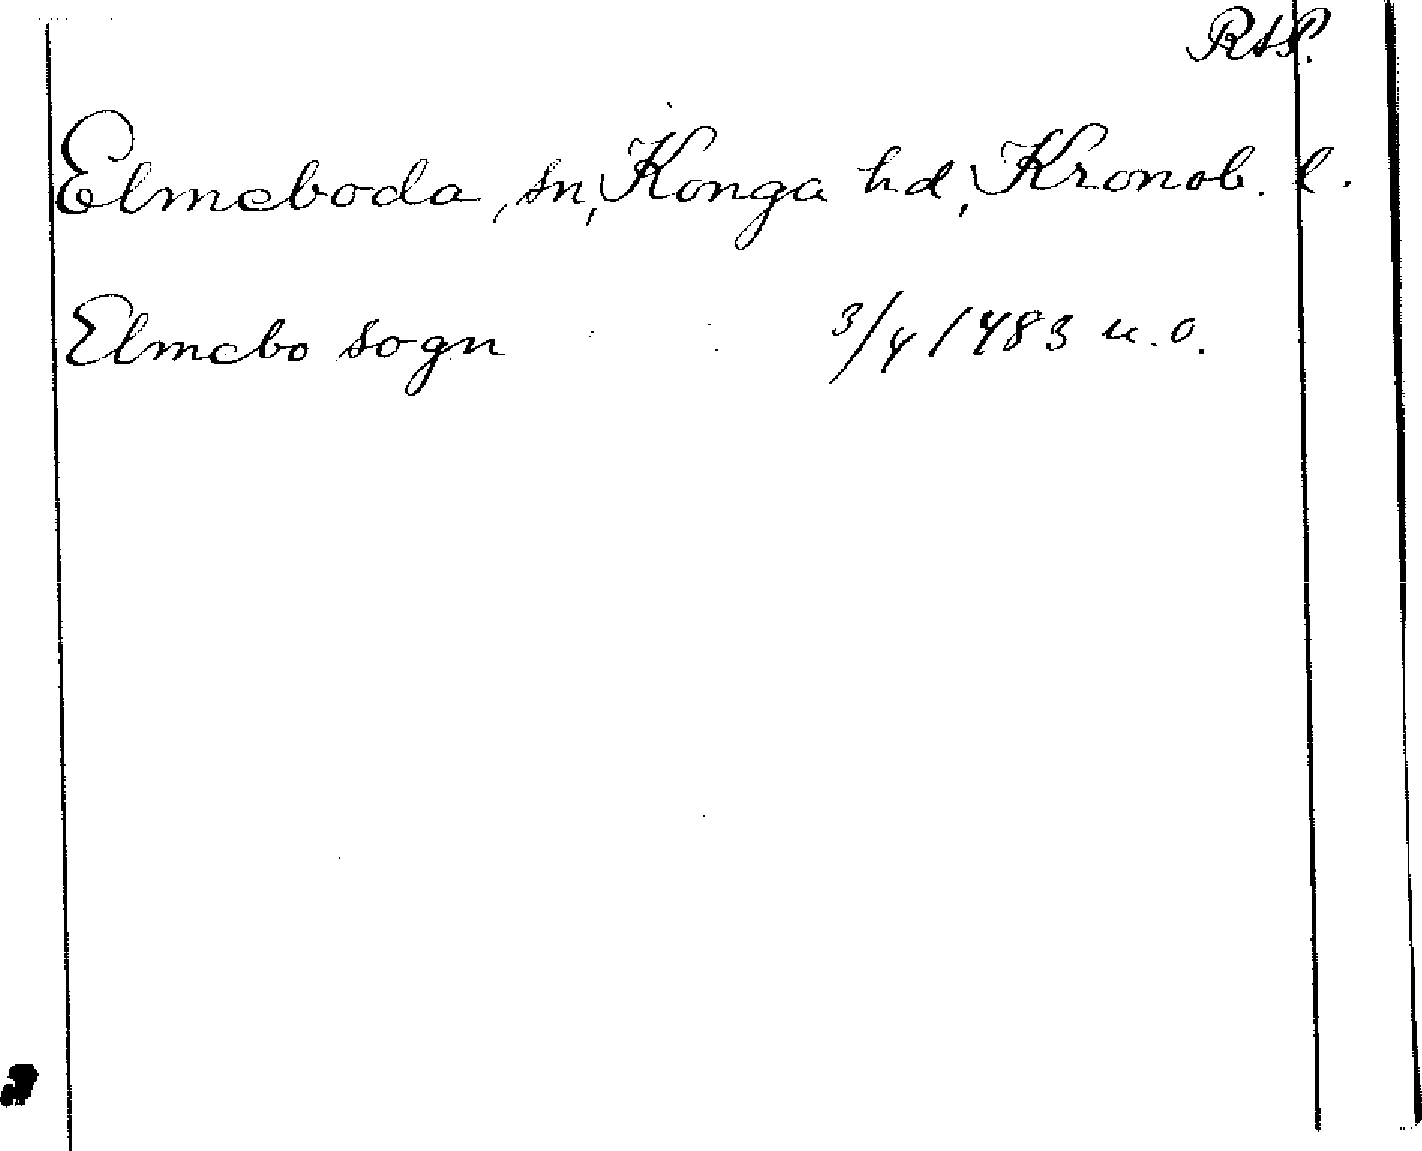 RAP.
Elmeboda, sn, Konga hd, Kronob. l.
Elmebo sogn 3/4 1483 u.o.